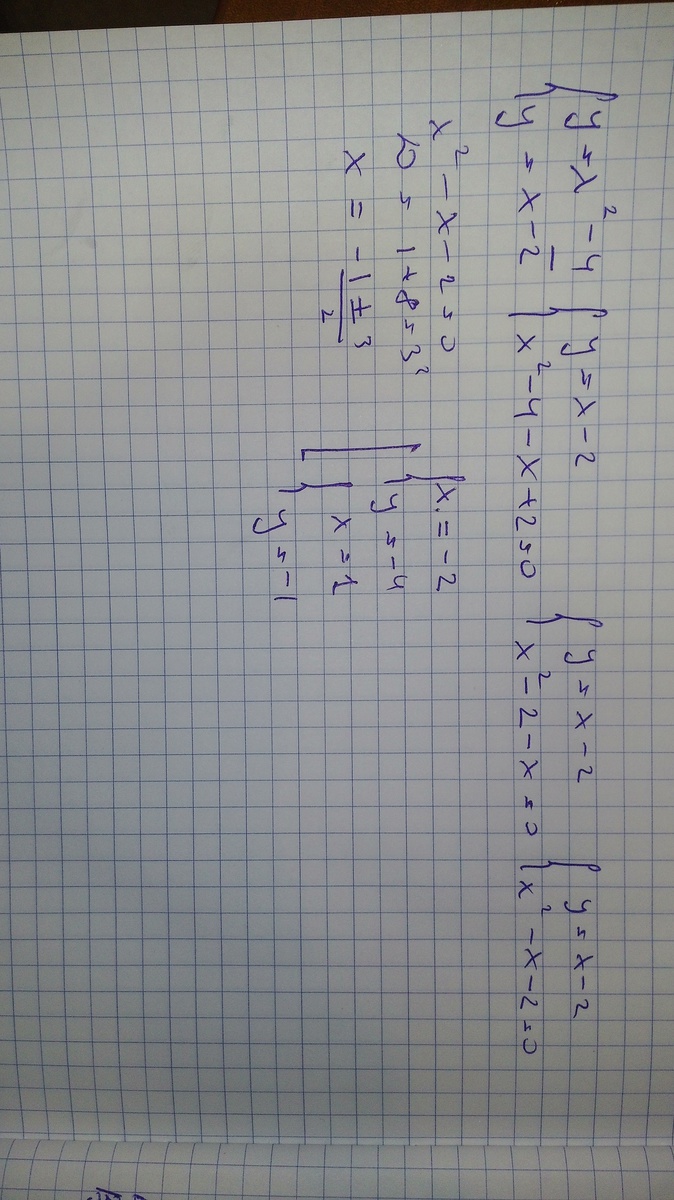 { y = x² - 4 { y = x - 2 { y = x - 2 { y = x - 2
{ y = x - 2 { x² - 4 - x + 2 = 0 { x² - 2 - x = 0 { x² - x - 2 = 0
x² - x - 2 = 0
D = 1 + 8 = 3²
x = -1 ± 3
2
[ { x = -2
{ y = -4
{ x = 1
{ y = -1